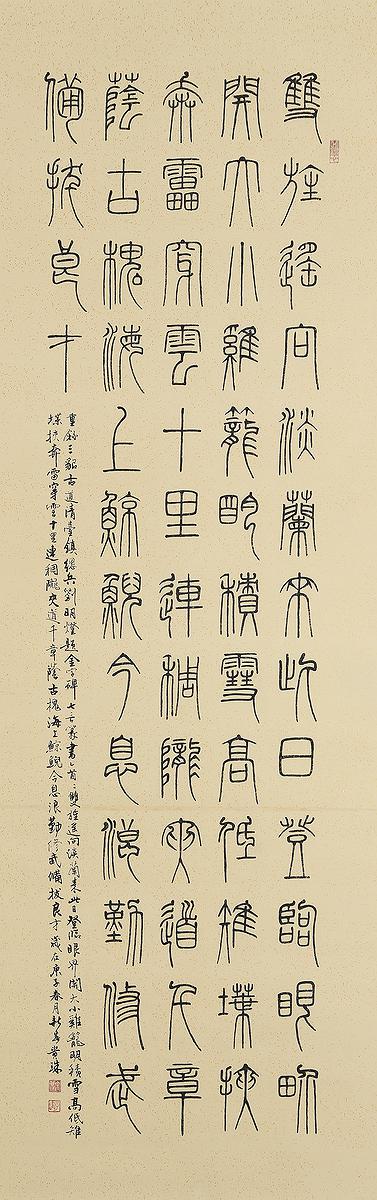 雙旌遙向淡蘭來此日登臨眼界
開大小雞籠明積雪高低雉堞挾
奔雷穿雲十里連稠隴夾道千章
蔭古槐海上鯨鯢今息浪勤修武
備拔良才
三貂古道清臺鎮總兵劉明燈題金字碑七言篆書一首雙旌遙向淡蘭來此日登臨眼界開大小雞籠明積雪高低雉
堞挾奔雷穿雲十里連稠隴夾道千章蔭古槐海上鯨鯢今息浪勤修武備拔良才歲在庚子春月